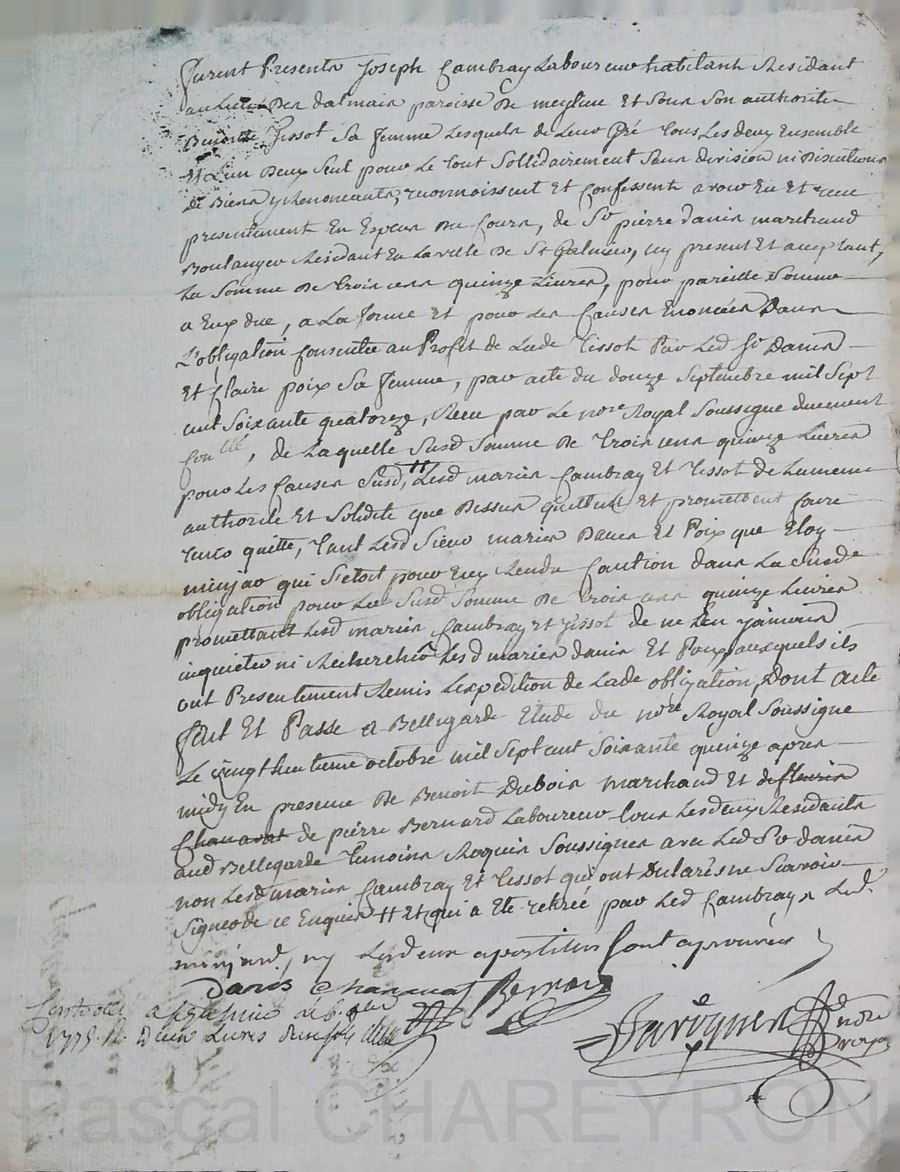 furent Presents Joseph Cambray Laboureur habitant Residant
au lieu des dalmais paroisse de meylieu Et Sous Son authorite
Benoite Tissot Sa femme Lesquels de Leur Gré tous Les deux Ensemble
Et L'un Deux Seul pour Le tout Sollidairement Sans division ni Discution
De Biens y Renonceants, reconnoissent Et Confessent avoir Eu Et receu
presentement En Especes Du Cours, de Sr pierre danis marchand
Boulanger Residant En La ville De St Galmier, icy present Et acceptant,
La Somme De trois cens quinze Livres, pour pareille Somme
a Eux due, a La forme Et pour Les Causes Enoncées Dans
L'obligation Consentie au Profit de Lade Tissot Par Led Sr Danis
Et Claire poix Sa femme, par acte du douze Septembre mil Sept
cent Soixante quatorze, Receu par Le nore Royal Soussigné duement
Conllé, de Laquelle Susd Somme De trois cens quinze Livres
pour Les Causes Susd, †† Lesd mariés Cambray Et Tissot de Lameme
authorité Et Solidité que Dessus quittent Et promettent faire
tenir quitte, tant Lesd Sieur mariés Danis Et Poix que Eloy
minjar qui S'etoit pour Eux Rendu Caution dans La Susde
obligation pour La Susd Somme De trois cens quinze Livres
promettant Lesd mariés Cambray Et Tissot de ne Les En jamais
inquieter ni Rechercher Lesd mariés danis Et Poix auxquels ils
ont Presentement Remis L'expedition de Lade obligation, Dont acte
fait Et Passé a Bellegarde Etude du nore Royal Soussigné
Le vingt huitieme octobre mil Sept cent Soixante quinze apres
midy En presence De Benoit Dubois marchand Et de fleurie
Chanavat de pierre Bernard Laboureur tous Lesdeux Residants
aud Bellegarde temoins Requis Soussignés avec Led Sr danis
non Lesd mariés Cambray Et Tissot qui ont Declarés ne Scavoir
Signer de ce Enquis †† Et qui a Eté retirée par Led Cambray Led
minjard, Les deux apostilles Sont aprouvées
Danis Chanavat Bernard
Controllé a St Galmier
1775 R. Deux Livres